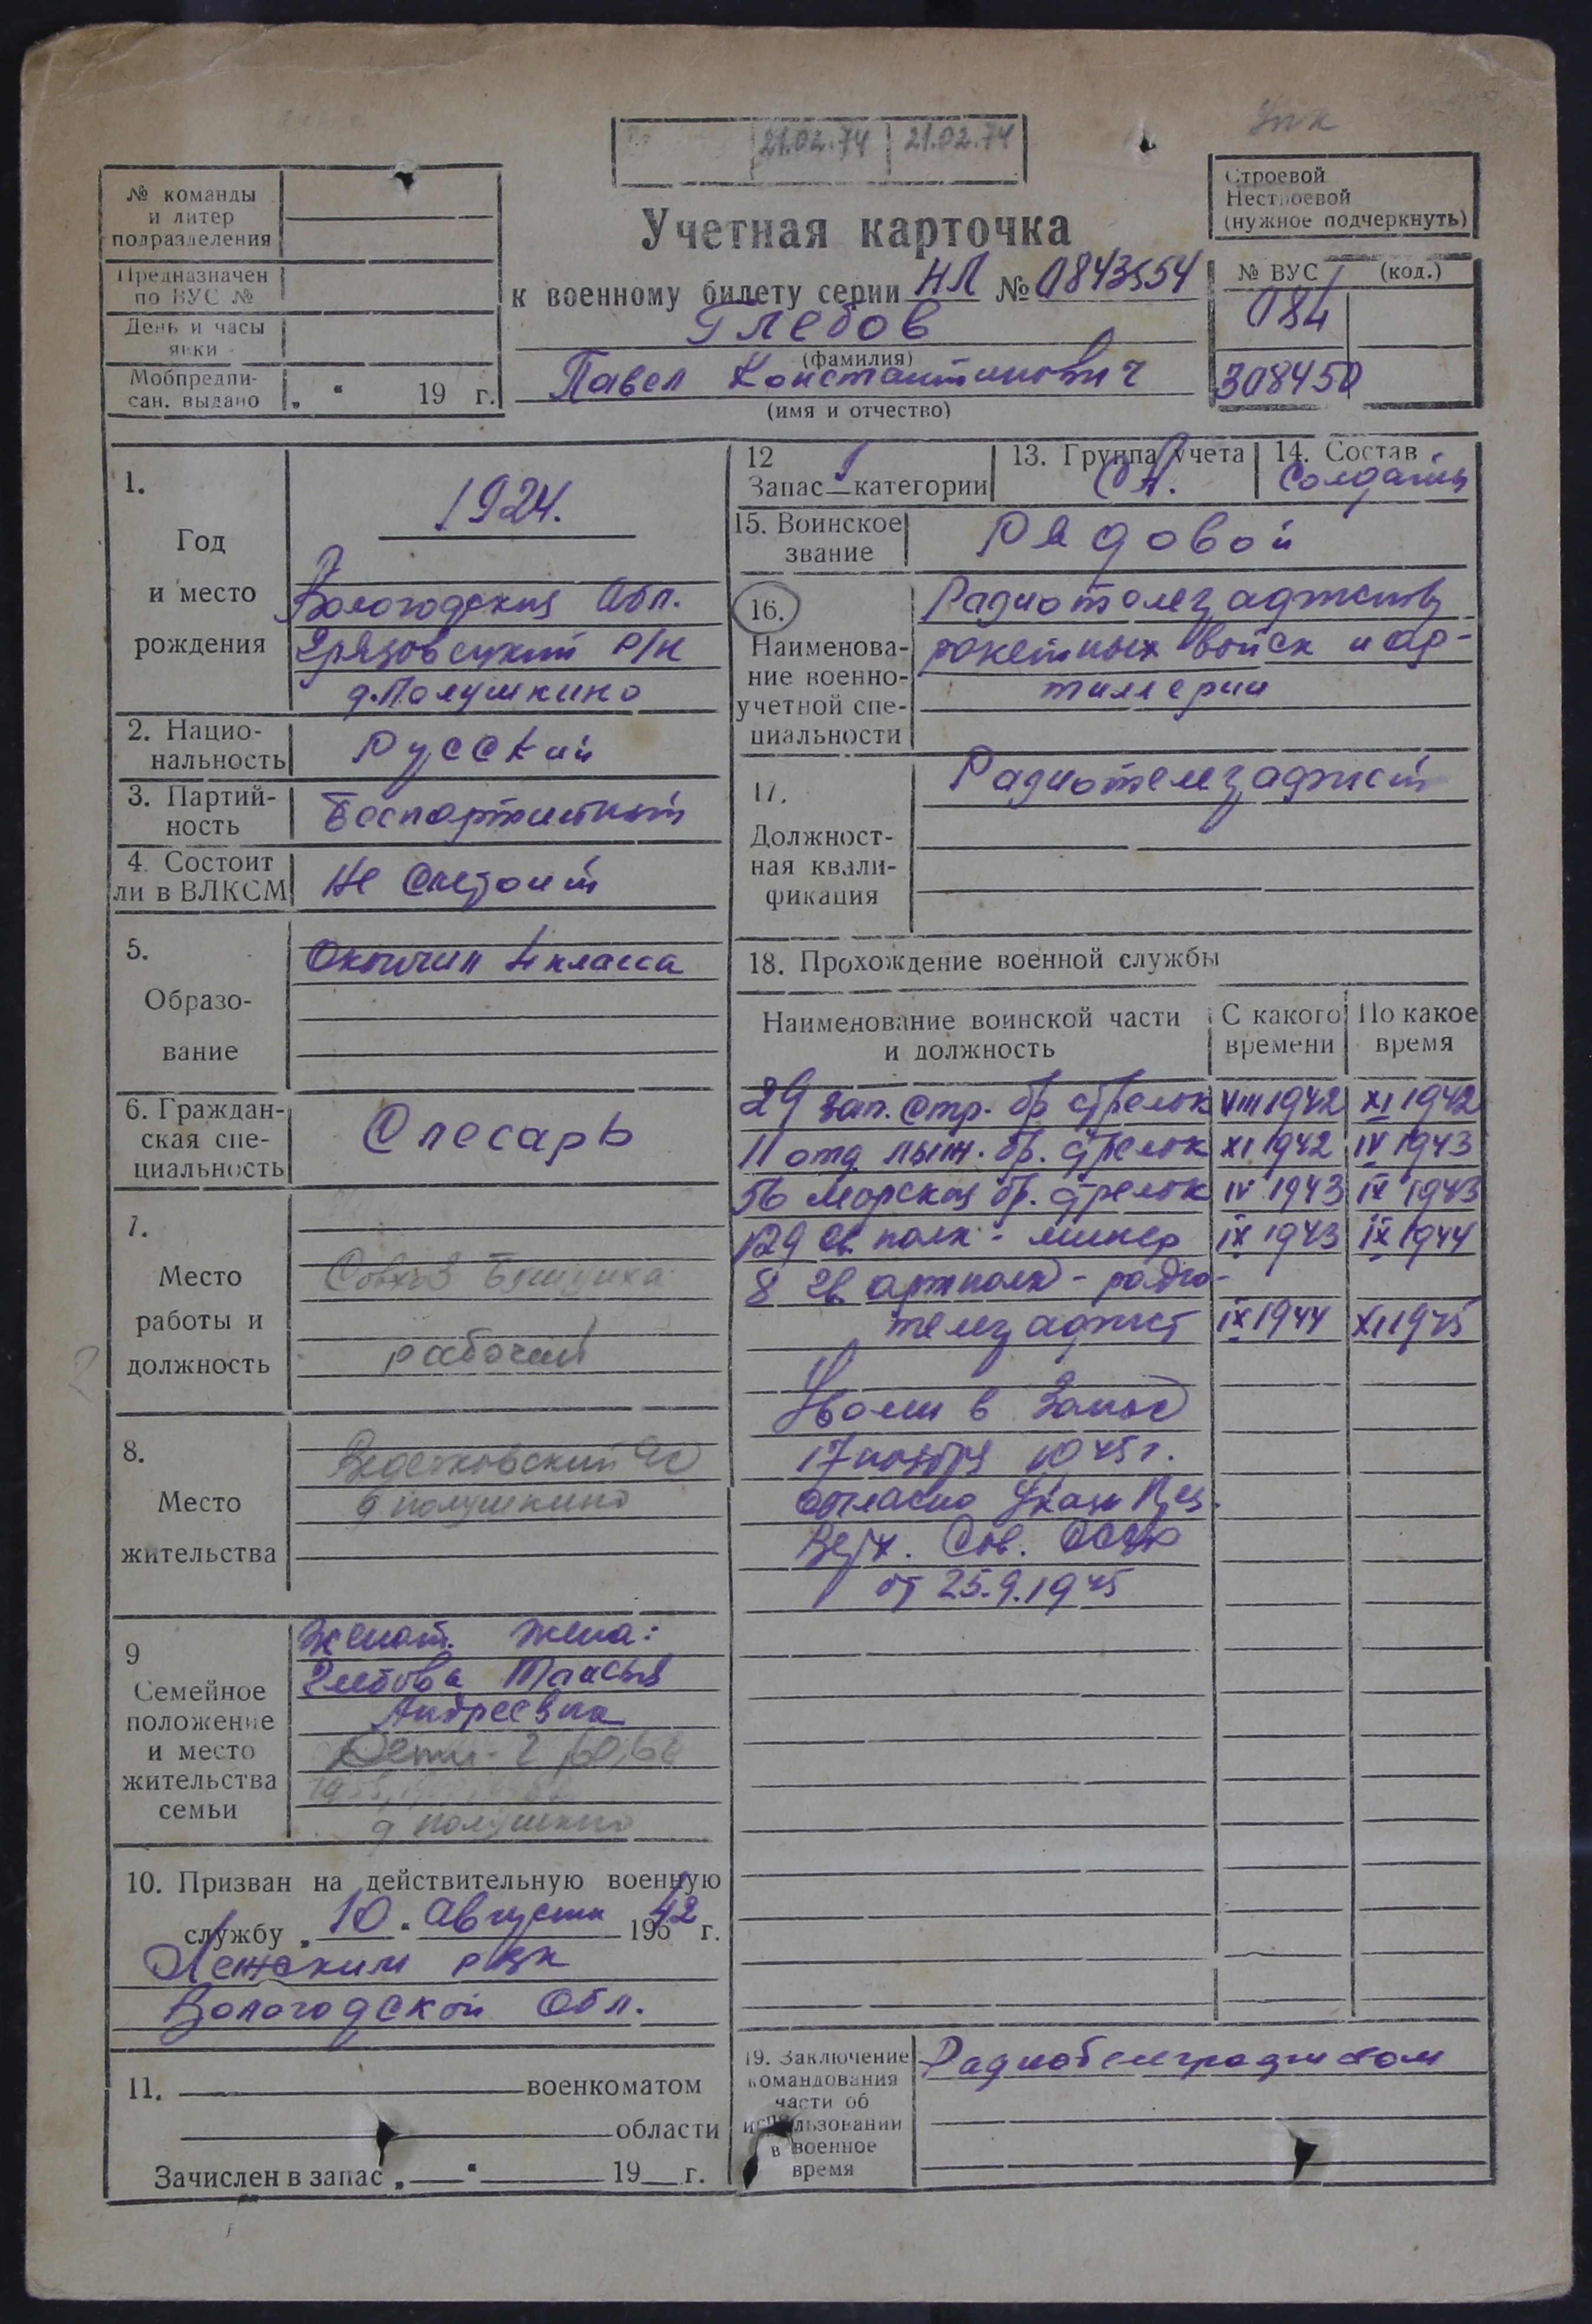 Упк
21.02.74 21.02.74
№ команды
и литер
подразделения
Предназначен
по ВУС №
День и часы
явки
Мобпредпи-
сан. выдано „ “ 19 г.
Учетная карточка
к военному билету серии НЛ № 0843554
Глебов
(фамилия)
Павел Константинович
(имя и отчество)
Строевой
Нестроевой
(нужное подчеркнуть)
№ ВУС (код.)
084
308450
1.
Год
и место
рождения
1924.
Вологодская Обл.
Грязовецкий р/н
д. Полушкино
2. Нацио-
нальность
Русский
3. Партий-
ность
Беспартийный
4. Состоит
ли в ВЛКСМ
Не Состоит
5.
Образо-
вание
Окончил 4 класса
6. Граждан-
ская спе-
циальность
Слесарь
7.
Место
работы и
должность
Совхоз
рабочий
8.
Место
жительства
д Полушкино
9
Семейное
положение
и место
жительства
семьи
Женат. Жена:
Глебова Таисья
Андреевна
Дети - 2
д Полушкино
10. Призван на действительную военную
службу „ 10 “ Августа 196 42 г.
Лежским рвк
Вологодской Обл.
11. военкоматом
области
Зачислен в запас „ “ 19 г.
12
Запас 1 категории
13. Группа учета
СА.
14. Состав
Солдаты
15. Воинское
звание
Рядовой
16.
Наименова-
ние военно-
учетной спе-
циальности
ракетных войск и ар-
тиллерии
17.
Должност-
ная квали-
фикация
18. Прохождение военной службы
Наименование воинской части
и должность
С какого
времени
По какое
время
29 зап. стр. бр стрелок VIII 1942 XI 1942
11 отд лыж. бр. стрелок XI 1942 IV 1943
56 морская бр. стрелок IV 1943 IX 1943
129 св полк - минер IX 1943 IX 1944
8 гв артполк - радио-
IX 1944 XI 1945
Уволен в Запас
17 ноября 1945 г.
согласно Указа През.
Верх. Сов. СССР
от 25.9.1945
19. Заключение
командования
части об
использовании
в военное
время